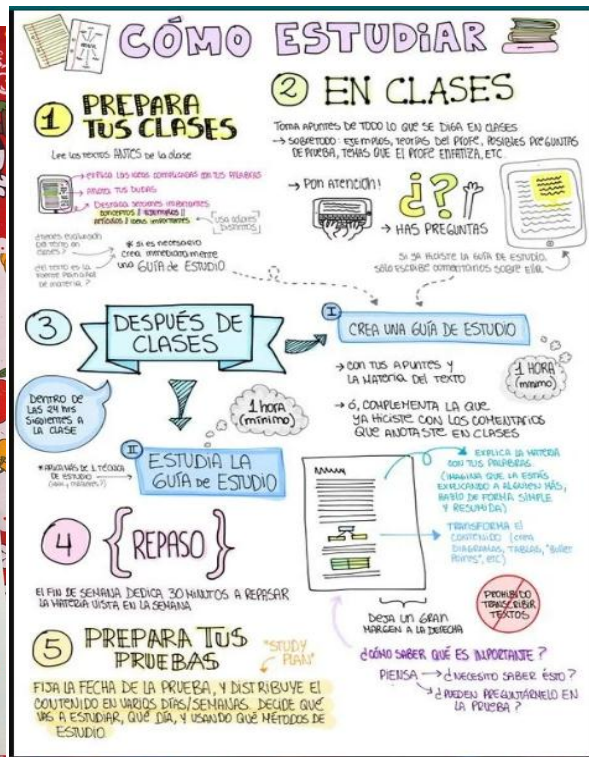 CÓMO ESTUDIAR
1 PREPARA
TUS CLASES
Lee los textos ANTES de la clase
→ explica las ideas complicadas con tus palabras
→ Anota tus dudas
→ Destaca secciones importantes
conceptos // ejemplos //
artículos // ideas importantes
usa colores
distintos
¿tienes evaluación
del texto en
clases?
¿el texto es la
fuente principal
de materia?
* si es necesario
crea inmediatamente
una GUÍA DE ESTUDIO
2 EN CLASES
Toma apuntes de TODO LO QUE SE DIGA EN CLASES
→ SOBRETODO: EJEMPLOS, TEORÍAS DEL PROFE, POSIBLES PREGUNTAS
DE PRUEBA, TEMAS QUE EL PROFE ENFATIZA, ETC.
→ PON ATENCIÓN!
¿?
→ HAS PREGUNTAS
SI YA HICISTE LA GUÍA DE ESTUDIO,
SÓLO ESCRIBE COMENTARIOS SOBRE ELLA
3 DESPUÉS DE
CLASES
DENTRO DE
LAS 24 hrs
SIGUIENTES A
LA CLASE
I
CREA UNA GUÍA DE ESTUDIO
1 HORA
(mínimo)
→ CON TUS APUNTES Y
LA MATERIA DEL TEXTO
→ Ó, COMPLEMENTA LA QUE
YA HICISTE CON LOS COMENTARIOS
QUE ANOTASTE EN CLASES
1 hora
(mínimo)
II
ESTUDIA LA
GUÍA DE ESTUDIO
DE ESTUDIO
EXPLICA LA MATERIA
CON TUS PALABRAS
(IMAGINA QUE LA ESTÁS
EXPLICANDO A ALGUIEN MÁS,
HAZLO DE FORMA SIMPLE
Y RESUMIDA)
TRANSFORMA El
CONTENIDO (crea
DIAGRAMAS, TABLAS, "Bullet
Points", etc)
PROHIBIDO
TRANSCRIBIR
TEXTOS
DEJA UN GRAN
MARGEN A LA DERECHA
¿CÓMO SABER QUÉ ES IMPORTANTE?
PIENSA → ¿NECESITO SABER ÉSTO?
→ ¿PUEDEN PREGUNTÁRMELO EN
LA PRUEBA?
4 {REPASO}
El FIN DE SEMANA DEDICA 30 MINUTOS A REPASAR
LA MATERIA VISTA EN LA SEMANA
5 PREPARA TUS
PRUEBAS
"STUDY
PLAN"
FIJA LA FECHA DE LA PRUEBA, Y DISTRIBUYE EL
CONTENIDO EN VARIOS DÍAS/SEMANAS. DECIDE QUÉ
VAS A ESTUDIAR, QUÉ DÍA, Y USANDO QUÉ MÉTODOS DE
ESTUDIO